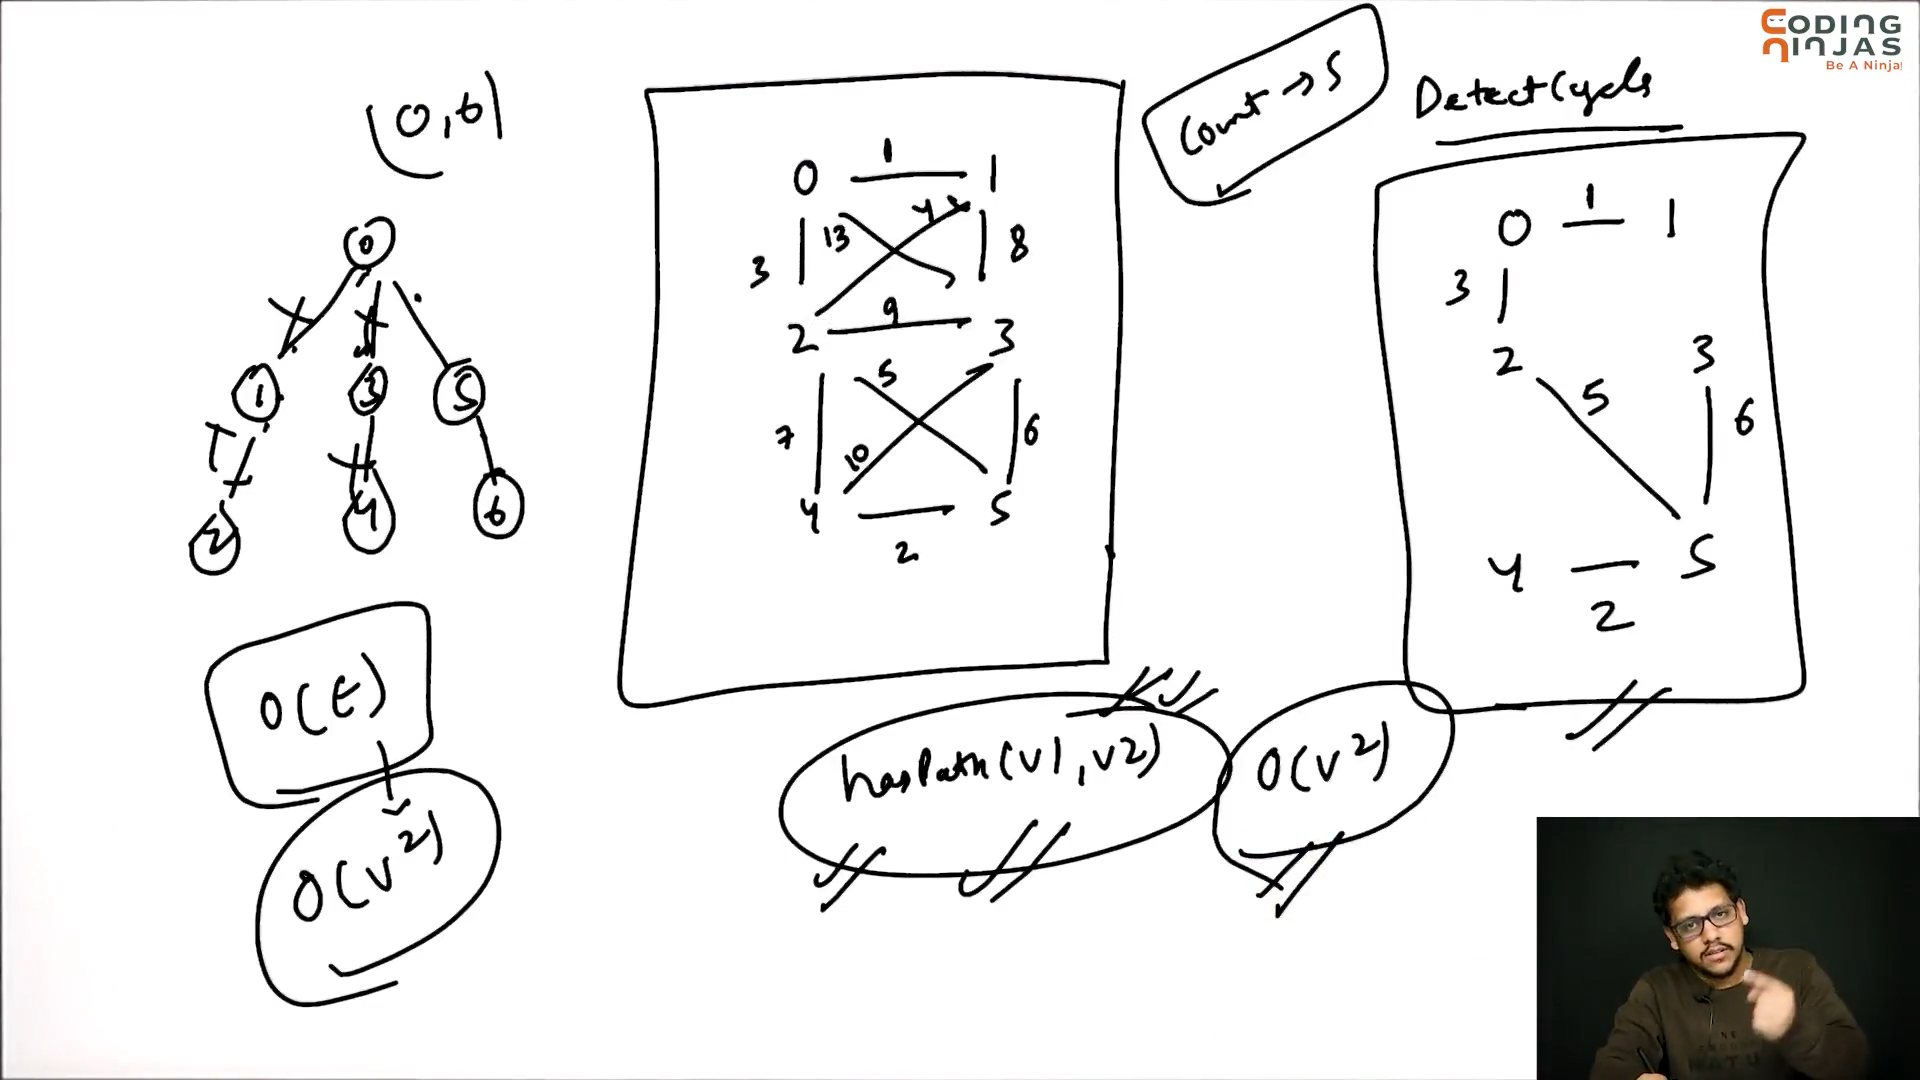 CODING
NINJAS
Be A Ninja!
(0,6)
0
1 3 5
2 4 6
O(E)
O(V²)
0 1 1
3 13 4 8
2 9 3
7 5 10 6
4 5
2
Count → 5
Detect Cycle
0 1 1
3
2 3
5 6
4 5
2
hasPath(v1,v2)
O(V²)